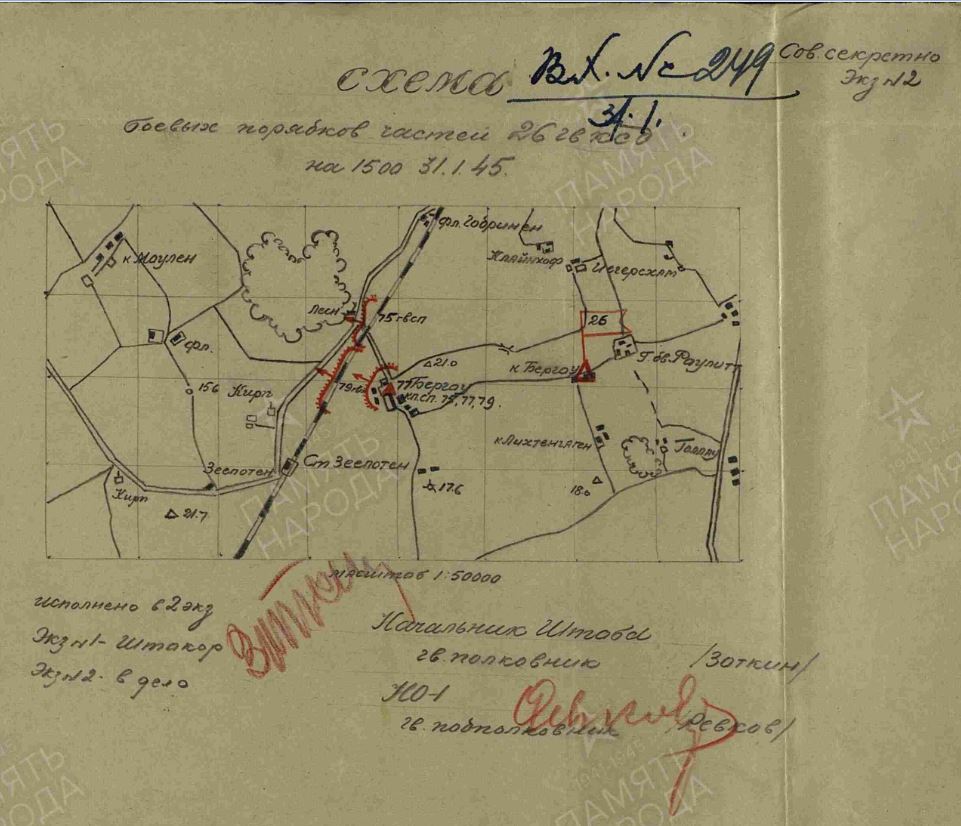 Вх. № 249
31.1.
Сов. секретно
Экз №2
схема
боевых порядков частей 26 гв ксд
на 1500 31.1.45.
фл. Гобринен
к Моулен
Клайнхоф
Иегерсхам
Лесн
75 гвсп
26
фл.
21.0
к. Бергоу
Г. дв. Раулит
15.6
Кирп
79
77
Бергоу
кп. сп. 75, 77, 79.
к Лихтенгаген
Зеепотен
Ст Зеепотен
17.6
18.0
Кирп
21.7
масштаб 1:50000
исполнено в 2 экз
Экз №1 - Штакор
Экз №2 - в дело
Начальник Штаба
гв. полковник /Зоткин/
НО-1
гв. подполковник /Ревков/
ПАМЯТЬ
НАРОДА